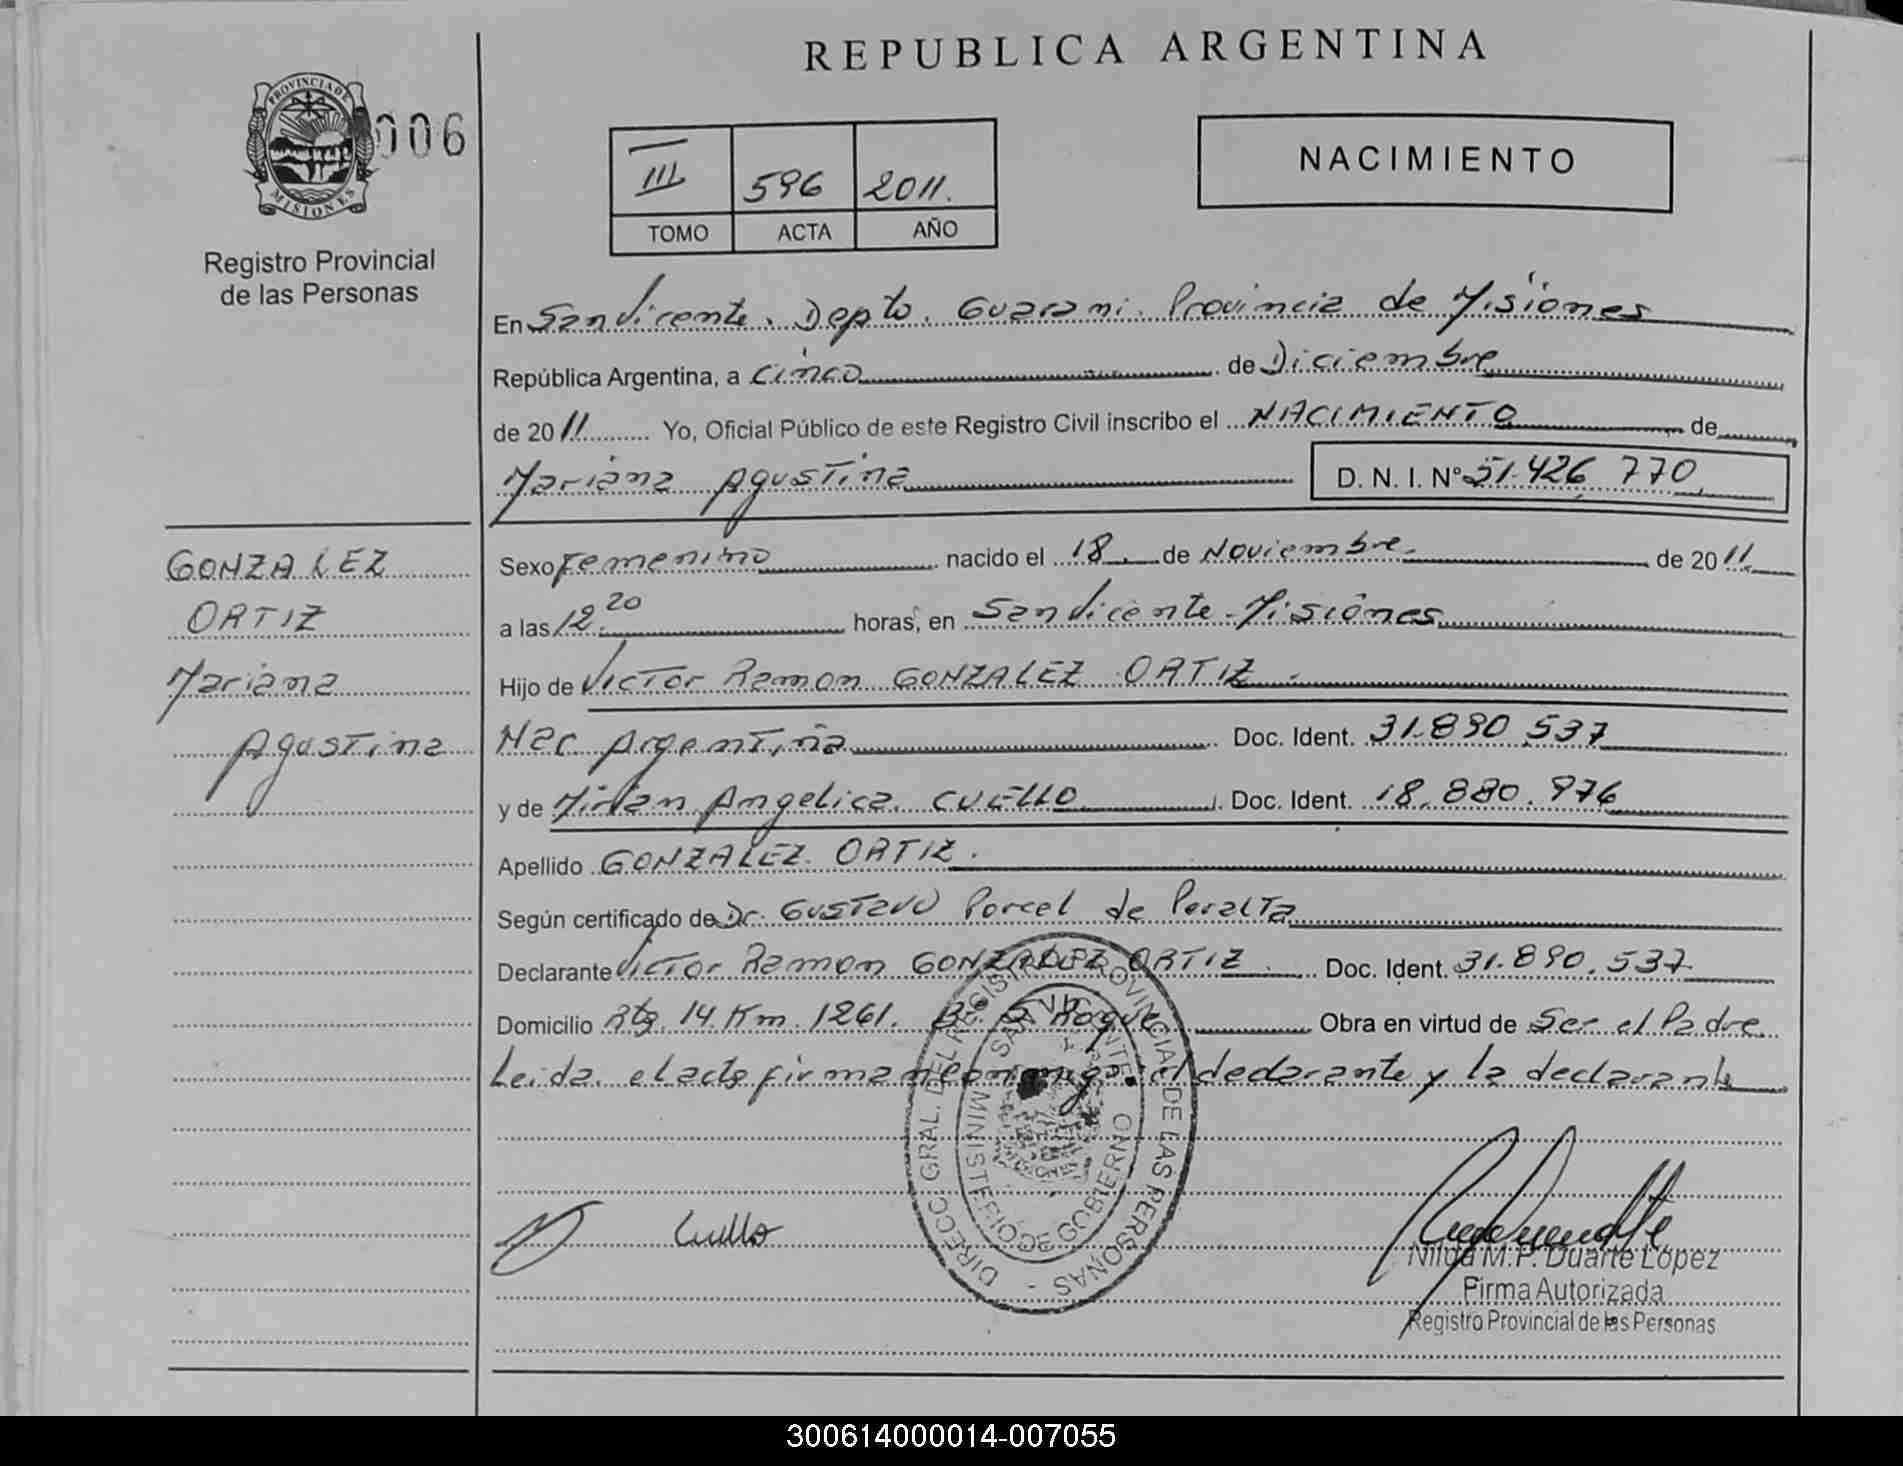 REPUBLICA ARGENTINA
PROVINCIA DE
MISIONES
006
Registro Provincial
de las Personas
III 596 2011.
TOMO ACTA AÑO
NACIMIENTO
En San Vicente. Depto. Guarani. Provincia de Misiones
República Argentina, a cinco de Diciembre
de 2011 Yo, Oficial Público de este Registro Civil inscribo el NACIMIENTO de
Mariana Agustina D. N. I. N° 51.426.770
GONZALEZ
ORTIZ
Mariana
Agustina
Sexo Femenino nacido el 18. de Noviembre. de 2011.
a las 12.20 horas, en San Vicente - Misiones
Hijo de Victor Ramon GONZALEZ ORTIZ.
Nac Argentina Doc. Ident. 31.890.537
y de Mirian Angelica CUELLO Doc. Ident. 18.880.976
Apellido GONZALEZ ORTIZ.
Según certificado de Dr. Gustavo Porcel de Peralta
Declarante Victor Ramon GONZALEZ ORTIZ. Doc. Ident. 31.890.537
Domicilio Rta. 14 Km. 1261. Bº S. Roque Obra en virtud de Ser el Padre
Leida el acta firman conmigo el declarante y la declarante
DIRECC. GRAL. DEL REGISTRO PROVINCIAL DE LAS PERSONAS -
SAN VICENTE
MINISTERIO DE GOBIERNO
Cuello
Nilda M.P. Duarte López
Firma Autorizada
Registro Provincial de las Personas
300614000014-007055